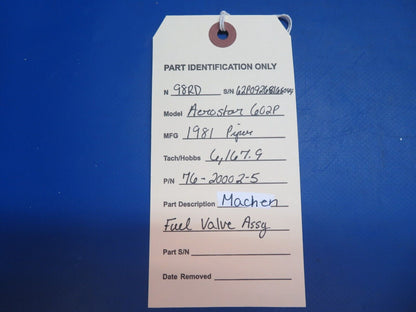 PART IDENTIFICATION ONLY
N 98RD S/N
Model Aerostar 602P
MFG 1981 Piper
Tach/Hobbs 6,167.9
P/N 76-20002-5
Part Description Machen
Fuel Valve Assy
Part S/N
Date Removed